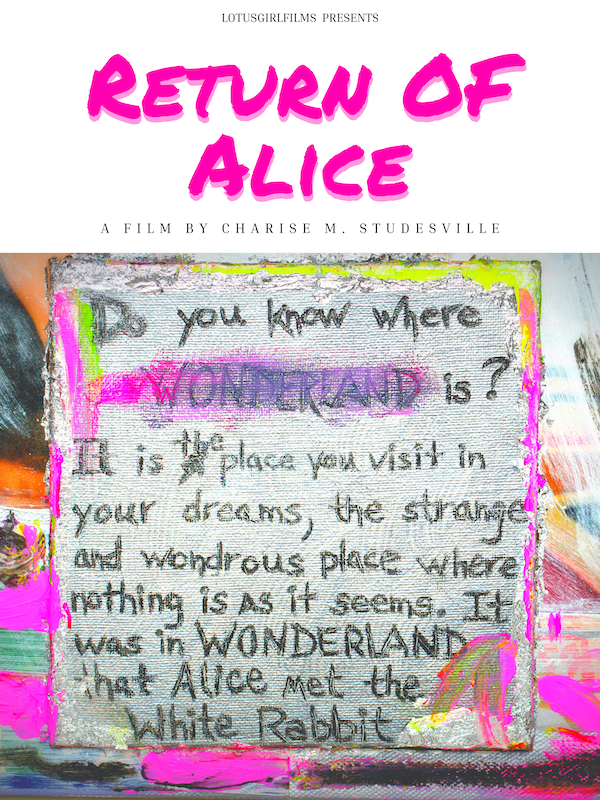 LOTUSGIRLFILMS PRESENTS
RETURN OF
ALICE
A FILM BY CHARISE M. STUDESVILLE
Do you know where
WONDERLAND is?
It is the place you visit in
your dreams, the strange
and wondrous place where
nothing is as it seems. It
was in WONDERLAND
that Alice met the
White Rabbit